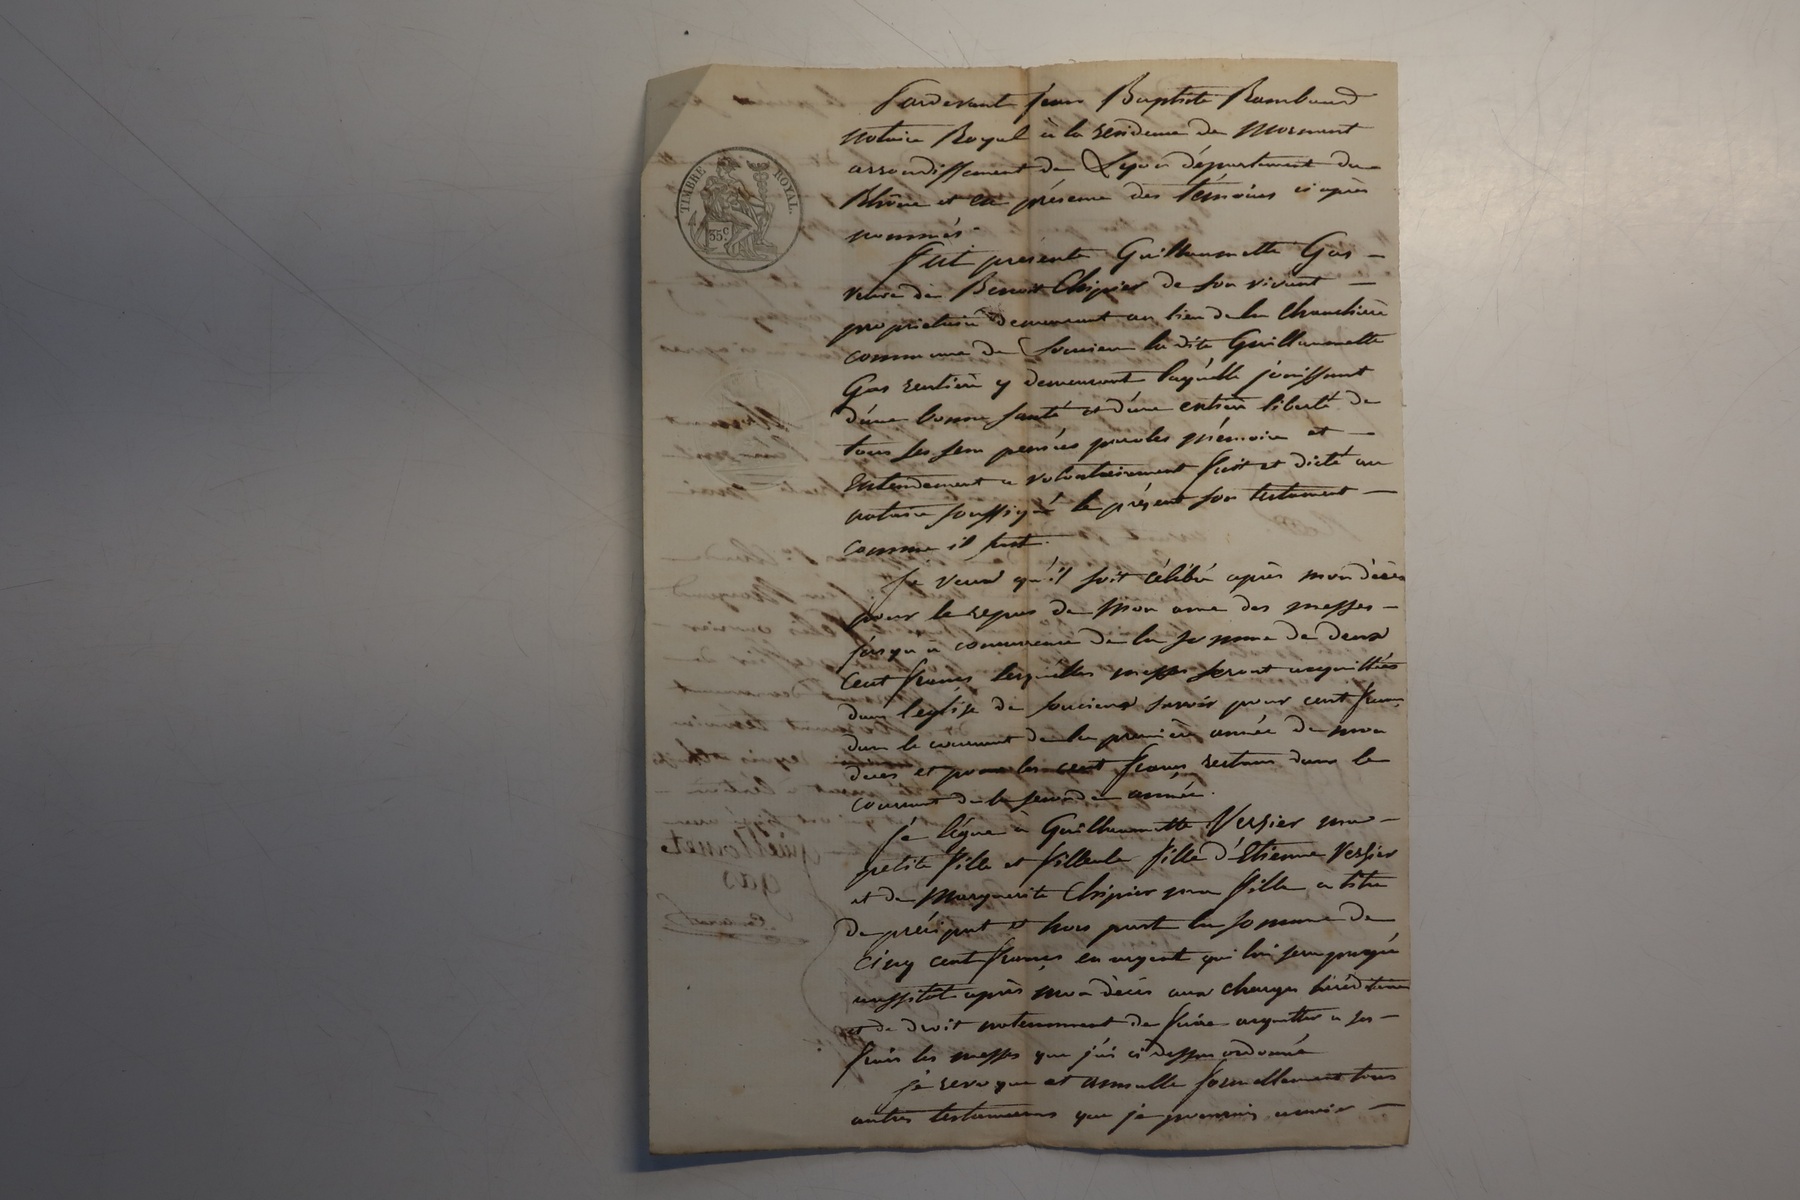 TIMBRE ROYAL.
35 c.
Pardevant Jean Baptiste Rambaud
notaire Royal à la residence de Mornant
arrondissement de Lyon département du
Rhône et en présence des témoins ci après
nommés.
Fut présente Guillaumette Gas
veuve de Benoit Chipier de son vivant
propriétaire demeurant au lieu de la
commune de Soucieu la dite Guillaumette
Gas rentière y demeurant laquelle jouissant
d'une bonne santé et d'une entière liberté de
tous ses sens pensées paroles mémoire et
Entendement a volontairement fait et dicté au
notaire soussigné le présent son testament
comme il suit.
Je veux qu'il soit célébré après mon décès
pour le repos de mon ame des messes
jusqu'à concurrence de la somme de deux
cent francs lesquelles messes seront acquittées
dans l'église de Soucieux savoir pour cent francs
dans le courant de la première année de mon
déces et pour les cent francs restans dans le
courant de la seconde année.
je lègue à Guillaumette Versier ma
petite fille et filleule fille d'Etienne Versier
et de Marguerite Chipier ma fille a titre
de préciput et hors part la somme de
Cinq cent francs en argent qui lui sera payée
aussitôt après mon décès aux charges héréditaires
et de droit notamment de faire acquitter a ses
frais les messes que j'ai ci dessus ordonné
je revoque et annulle formellement tous
autres testamens que je pourrois avoir
Guillaumet
gas